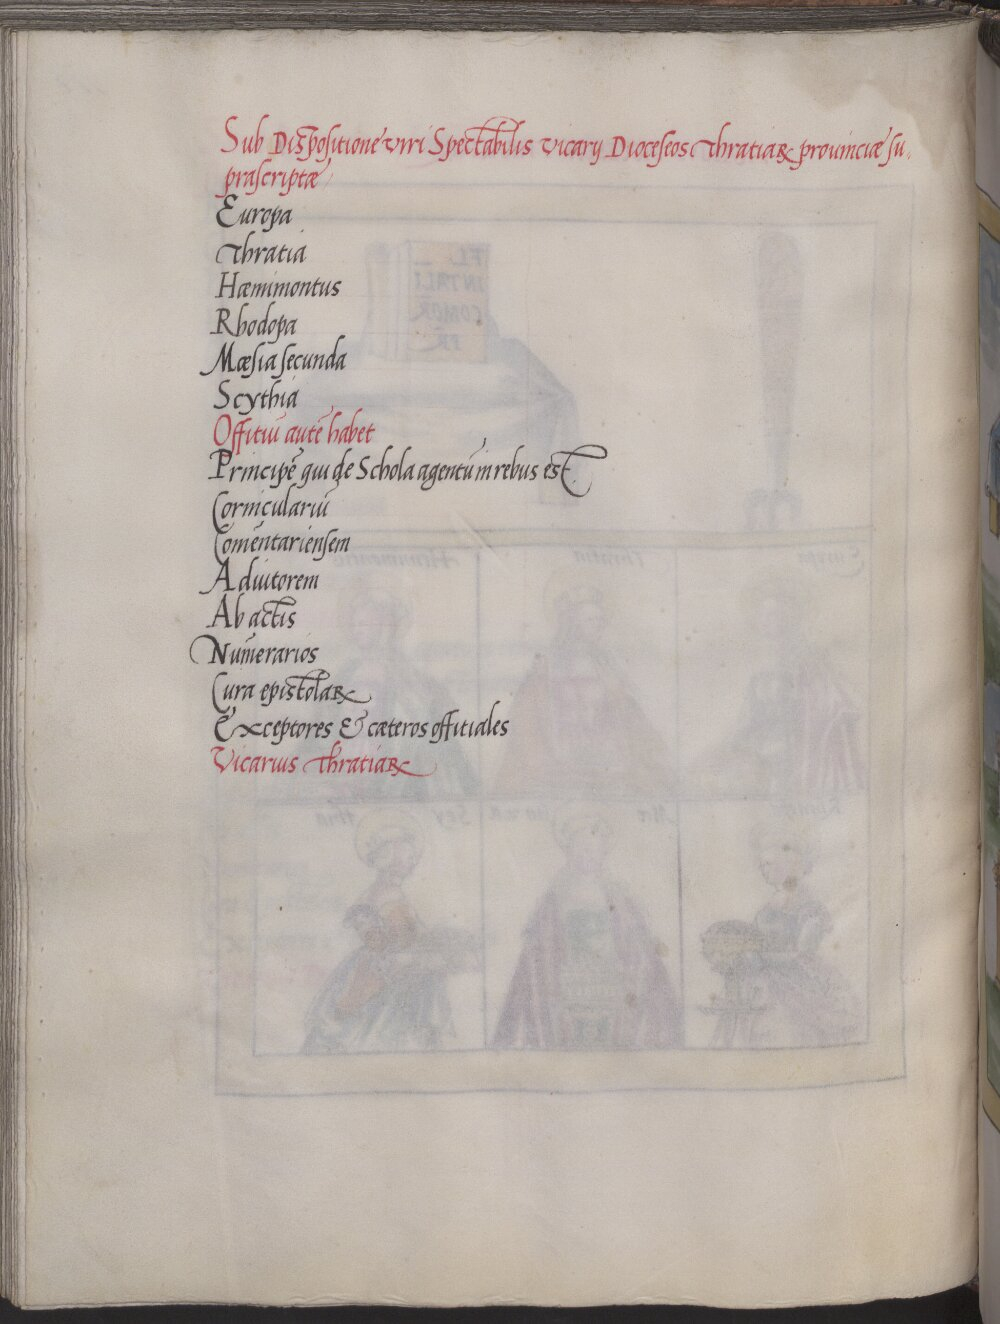 Sub Dispositione viri Spectabilis vicarij Dioceseos Thratiaꝝ prouinciæ su,
prascriptæ
Europa
Thratia
Hæmimontus
Rhodopa
Mœsia secunda
Scythia
Offitiũ autẽ habet
Principẽ qui de Schola agentũ in rebus est
Corniculariũ
Comentariensem
Adiutorem
Ab actis
Numerarios
Cura epistolaꝝ
Exceptores & cæteros offitiales
Vicarius Thratiaꝝ